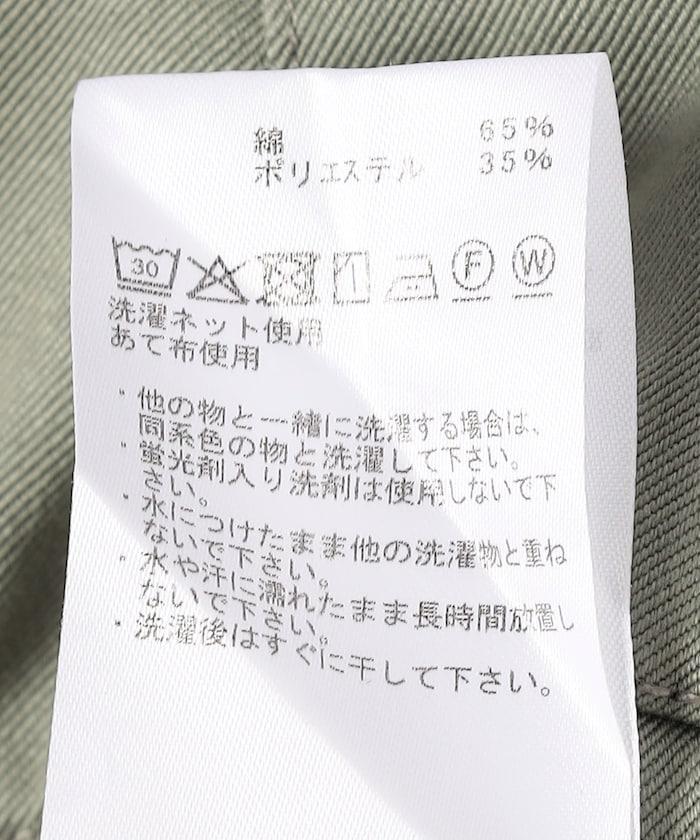 綿 65%
ポリエステル 35%
30 F W
洗濯ネット使用
あて布使用
・他の物と一緒に洗濯する場合は、
同系色の物と洗濯して下さい。
・蛍光剤入り洗剤は使用しないで下
さい。
・水につけたまま他の洗濯物と重ね
ないで下さい。
・水や汗に濡れたまま長時間放置し
ないで下さい。
・洗濯後はすぐに干して下さい。